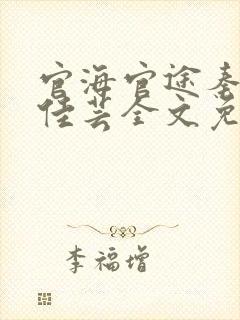 官海官途秦
佳芸全文免
李福增